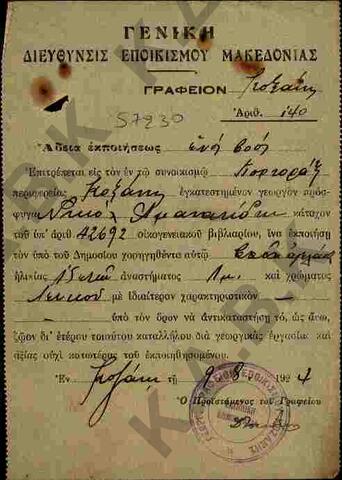 ΓΕΝΙΚΗ
ΔΙΕΥΘΥΝΣΙΣ ΕΠΟΙΚΙΣΜΟΥ ΜΑΚΕΔΟΝΙΑΣ
ΓΡΑΦΕΙΟΝ Κοζάνης
Ἀριθ. 140
57230
Ἄδεια ἐκποιήσεως ἑνὸς βοός
Ἐπιτρέπεται εἰς τὸν ἐν τῷ συνοικισμῷ
περιφερείας Κοζάνης ἐγκατεστημένον γεωργὸν πρόσ-
φυγα κάτοχον
τοῦ ὑπ' ἀριθ. 42692 οἰκογενειακοῦ βιβλιαρίου, ἵνα ἐκποιήσῃ
τὸν ὑπὸ τοῦ Δημοσίου χορηγηθέντα αὐτῷ
ἡλικίας ἀναστήματος καὶ χρώματος
Λευκοῦ μὲ ἰδιαίτερον χαρακτηριστικὸν
ὑπὸ τὸν ὅρον νὰ ἀντικαταστήσῃ τό, ὡς ἄνω,
ζῶον δι' ἑτέρου τοιούτου καταλλήλου διὰ γεωργικὰς ἐργασίας καὶ
ἀξίας οὐχὶ κατωτέρας τοῦ ἐκποιηθησομένου.
Ἐν Κοζάνῃ τῇ 9 8 1924
Ὁ Προϊστάμενος τοῦ Γραφείου